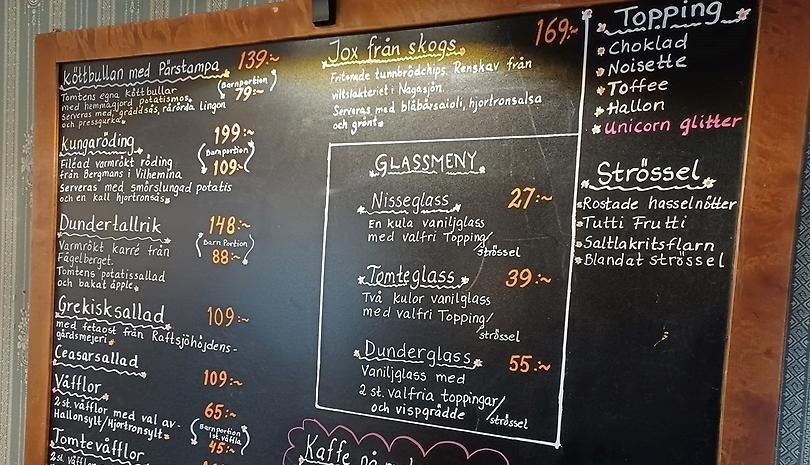 Köttbullan med Pärstampa 139:~
Tomtens egna köttbullar
med hemmagjord potatismos.
Serveras med, gräddsås, rårörda lingon
och pressgurka.
Barnportion
79:~
Kungaröding 199:~
Filéad varmrökt röding
från Bergmans i Vilhemina
Serveras med smörslungad potatis
och en kall hjortronsås
Barnportion
109:~
Dundertallrik 148:~
Varmrökt karré från
Fågelberget.
Tomtens potatissallad
och bakat äpple.
Barn Portion
88:~
Grekisksallad 109:~
med fetaost från Raftsjöhöjdens-
gårdsmejeri
Ceasarsallad 109:~
Våfflor 65:~
2 st. våfflor med val av-
Hallonsylt/Hjortronsylt
Barnportion
1st. våffla
45:~
Tomtevåfflor
2 st. våfflor
Jox från skogs 169:~
Friterade tunnbrödchips. Renskav från
viltslakteriet i Nagasjön.
Serveras med blåbärsaioli, hjortronsalsa
och grönt
GLASSMENY
Nisseglass 27:~
En kula vaniljglass
med valfri Topping/
strössel
Tomteglass 39:~
Två kulor vaniljglass
med valfri Topping/
strössel
Dunderglass 55:~
Vaniljglass med
2 st. valfria toppingar/
och vispgrädde strössel
Kaffe på
Topping
Choklad
Noisette
Toffee
Hallon
Unicorn glitter
Strössel
Rostade hasselnötter
Tutti Frutti
Saltlakritsflarn
Blandat strössel